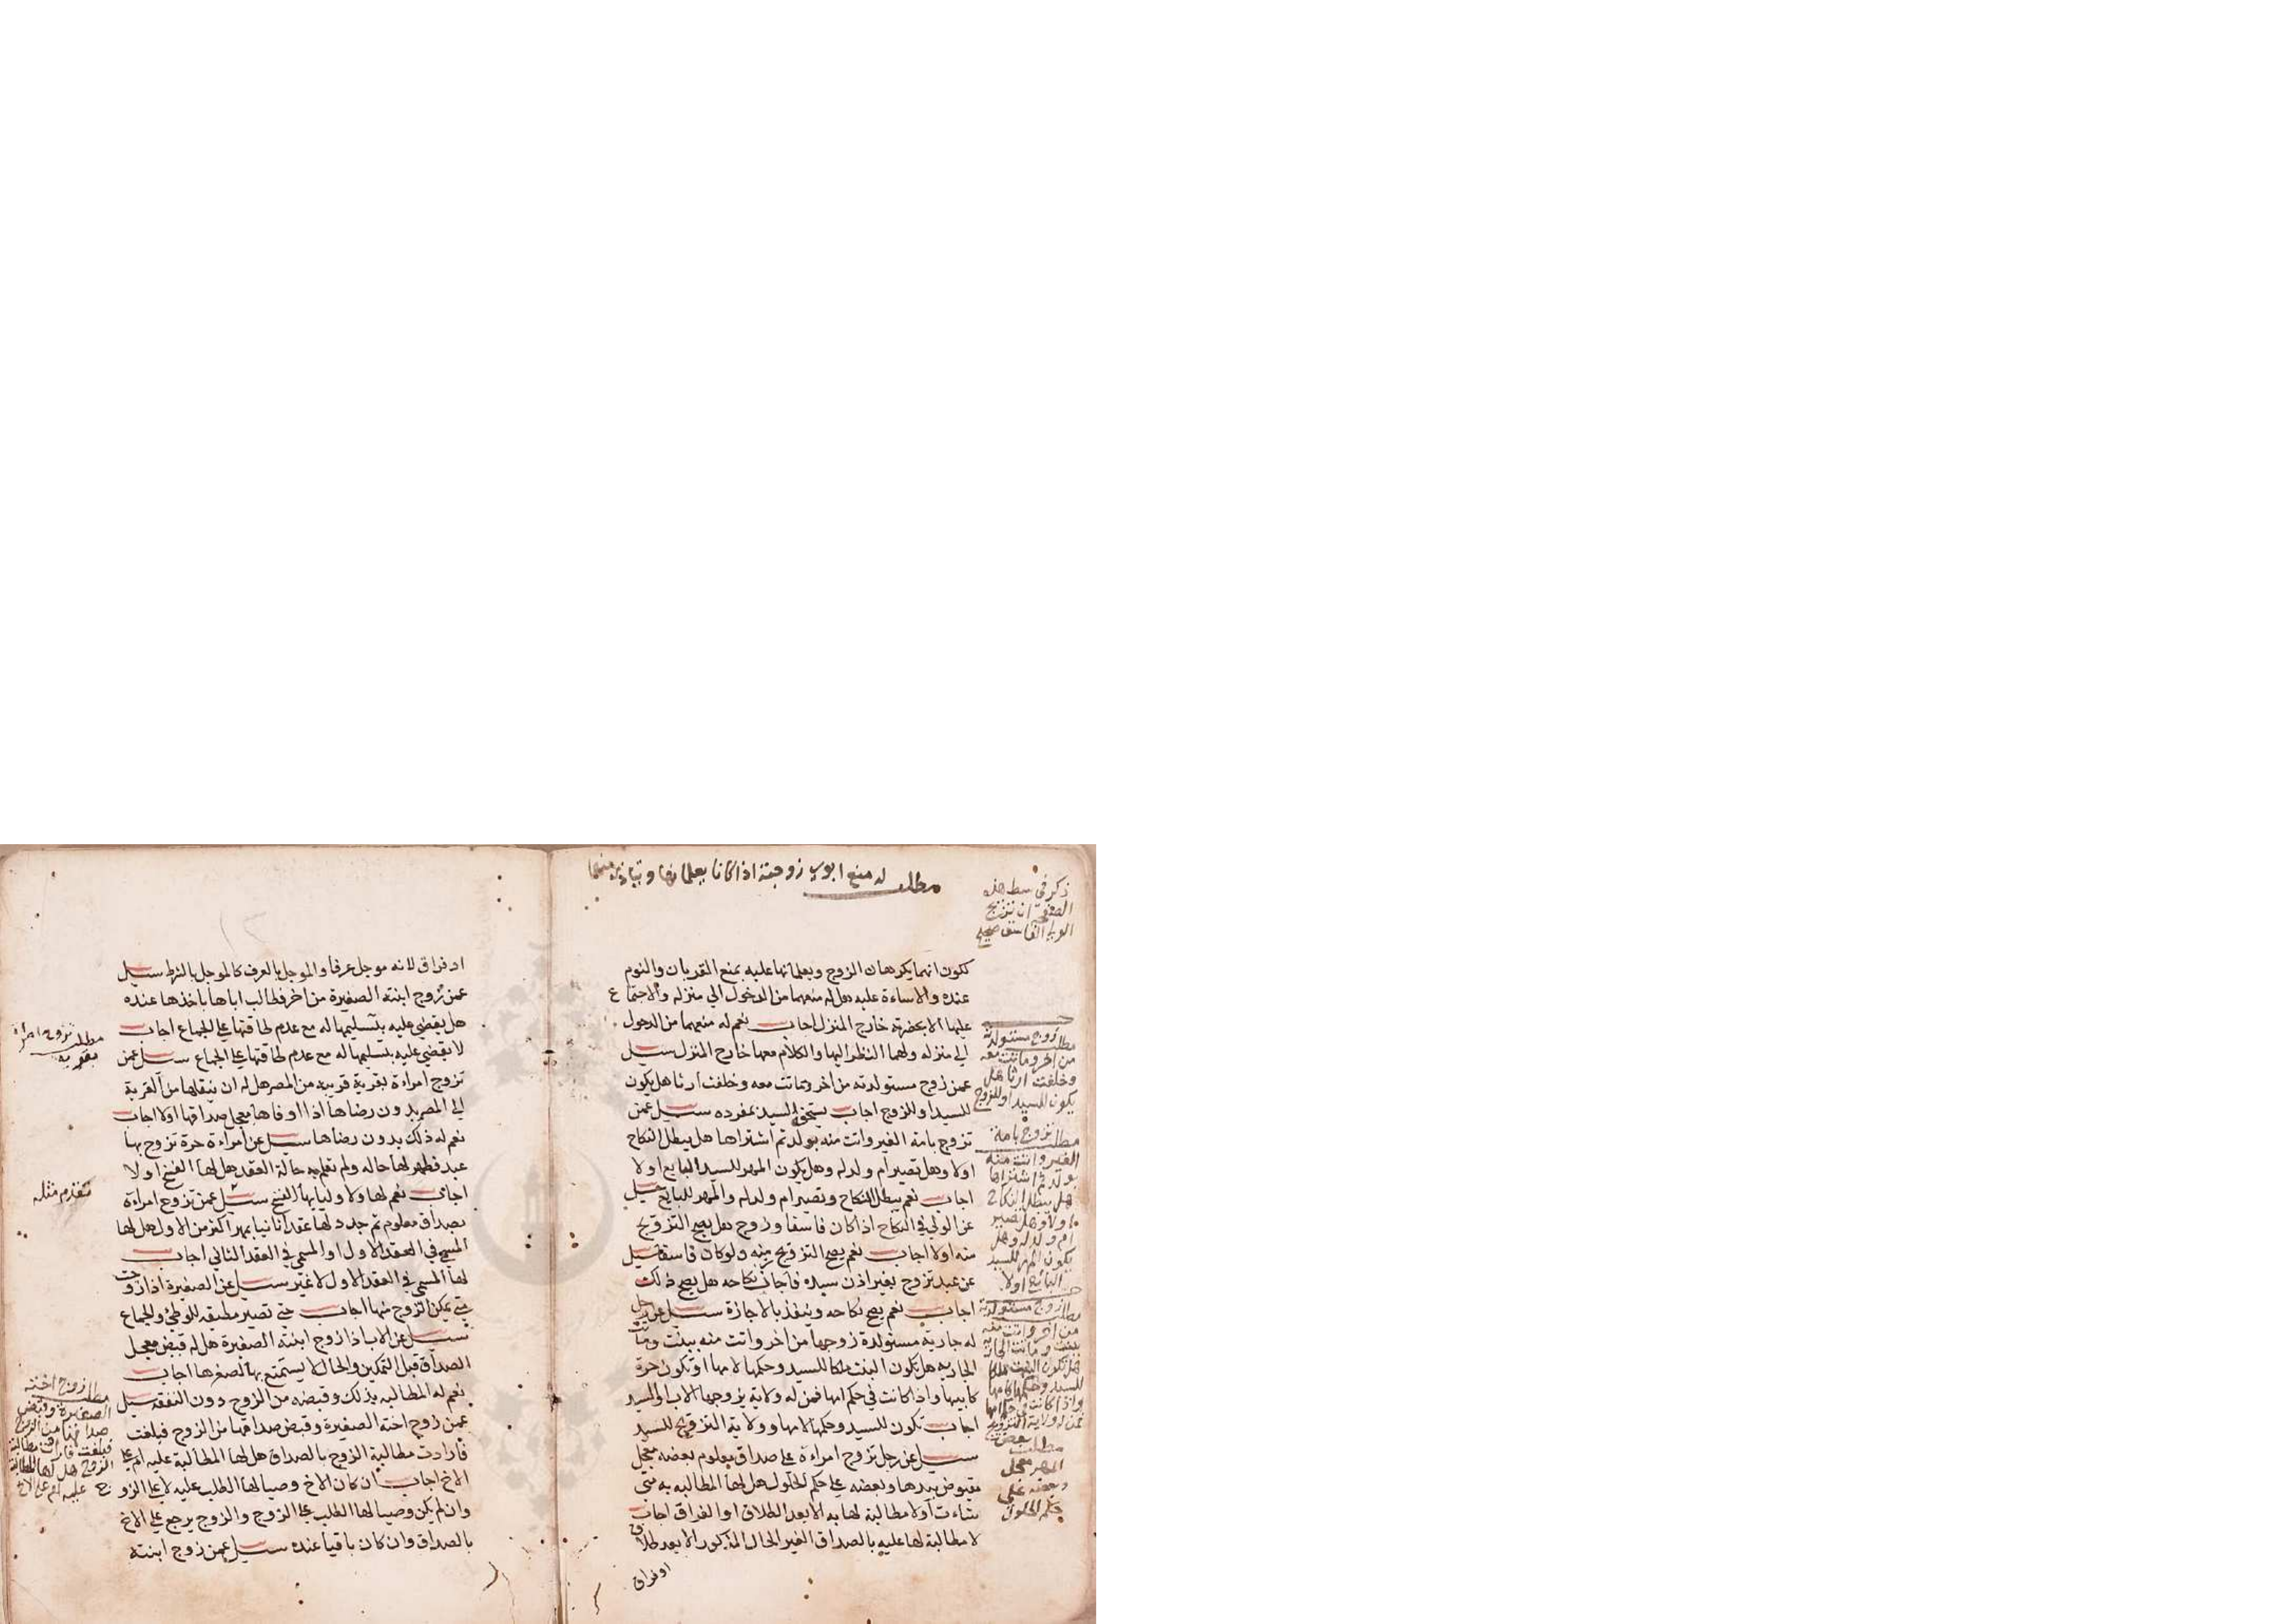 مطلب له منع ابوي زوجته اذا كانا يعلمانها
ذكر في وسط هذه
الصفحة ان تزويج
الولي الفاسق صحيح
لكون انهما يكرهان الزوج ويعلمانها عليه بمنع القربان والنوم
عنده والاساءة عليه هل له منعهما من الدخول الي منزله والاجتماع
عليها الا بحضرته خارج المنزل اجاب نعم له منعهما من الدخول
الي منزله ولهما النظر اليها والكلام معها خارج المنزل سيل
عمن زوج مستولدته من اخر وماتت معه وخلفت ارثا هل يكون
للسيد او للزوج اجاب يستحقه السيد بمفرده سيل عمن
تزوج بامة الغير واتت منه بولد ثم اشتراها هل يبطل النكاح
اولا وهل تصير ام ولد له وهل يكون المهر للسيد البايع اولا
اجاب نعم يبطل النكاح وتصير ام ولد له والمهر للبايع سيل
عن الولي في النكاح اذا كان فاسقا وزوج هل يصح التزويج
منه اولا اجاب نعم يصح التزويج منه ولو كان فاسقا سيل
عن عبد تزوج بغير اذن سيده فاجاز نكاحه هل يصح ذلك
اجاب نعم يصح نكاحه وينفذ بالاجازة سيل عن رجل
له جارية مستولدة زوجها من اخر واتت منه ببنت وماتت
الجاريه هل تكون البنت ملكا للسيد وحكمها لامها او تكون حرة
كابيها واذا كانت في حكم امها فمن له ولاية يزوجها الاب او السيد
اجاب تكون للسيد وحكمها لامها وولاية التزويج للسيد
سيل عن رجل تزوج امراءة علي صداق معلوم بعضه معجل
مقبوض بيدها وبعضه علي حكم الحلول هل لها المطالبه به متي
شاءت او لا مطالبة لها به الا بعد الطلاق او الفراق اجاب
لا مطالبة لها عليه بالصداق الغير الحال المذكور الا بعد طلاق
او فراق
مطلب زوج مستولدته
من اخر وماتت معه
وخلفت ارثا هل
يكون للسيد او للزوج
مطلب تزوج بامة
الغير واتت منه
بولد ثم اشتراها
هل يبطل النكاح
اولا وهل تصير
ام ولد له وهل
يكون المهر للسيد
البائع اولا
مطلب زوج مستولدته
من اخر واتت منه
ببنت وماتت الجاريه
هل تكون البنت ملكا
للسيد وحكمها كامها
واذا كانت في حكم امها
فمن له ولاية التزويج
مطلب بعض
المهر معجل
وبعضه علي
حكم الحلول
او فراق لانه موجل عرفا والموجل بالعرف كالموجل بالشرط سيل
عمن زوج ابنته الصغيرة من اخر فطالب اباها باخذها عنده
هل يقضي عليه بتسليمها له مع عدم طاقتها علي الجماع اجاب
لا يقضي عليه بتسليمها له مع عدم طاقتها علي الجماع سيل عمن
تزوج امراءة بقرية قريبه من المصر هل له ان ينقلها من القرية
الي المصر بدون رضاها اذا اوفاها معجل صداقها اولا اجاب
نعم له ذلك بدون رضاها سيل عن امراءة حرة تزوج بها
عبد فظهر لها حاله ولم تعلم به حالة العقد هل لها الفسخ اولا
اجاب نعم لها ولاوليايها الفسخ سيل عمن تزوج امراءة
بصداق معلوم ثم جدد لها عقدا ثانيا بمهر اكثر من الاول هل لها
المسمي في العقد الاول او المسمي في العقد الثاني اجاب
لها المسمي في العقد الاول لا غير سيل عن الصغيرة اذا زوجت
متي يمكن الزوج منها اجاب حتي تصير مطيقه للوطئ والجماع
سيل عن الاب اذا زوج ابنته الصغيرة هل له قبض معجل
الصداق قبل التمكين والحال لا يستمتع بها لصغرها اجاب
نعم له المطالبه بذلك وقبضه من الزوج دون النفقه سيل
عمن زوج اخته الصغيرة وقبض صداقها من الزوج فبلغت
فارادت مطالبة الزوج بالصداق هل لها المطالبة عليه ام علي
الاخ اجاب ان كان الاخ وصيا لها الطلب عليه لا علي الزوج
وان لم يكن وصيا لها الطلب علي الزوج والزوج يرجع علي الاخ
بالصداق وان كان باقيا عنده سيل عمن زوج ابنته
مطلب تزوج امراة
بقرية
تقدم مثله
مطلب زوج اخته
الصغيرة وقبض
صداقها من الزوج
فبلغت فارادت مطالبة
الزوج هل لها المطالبة
عليه ام علي الاخ